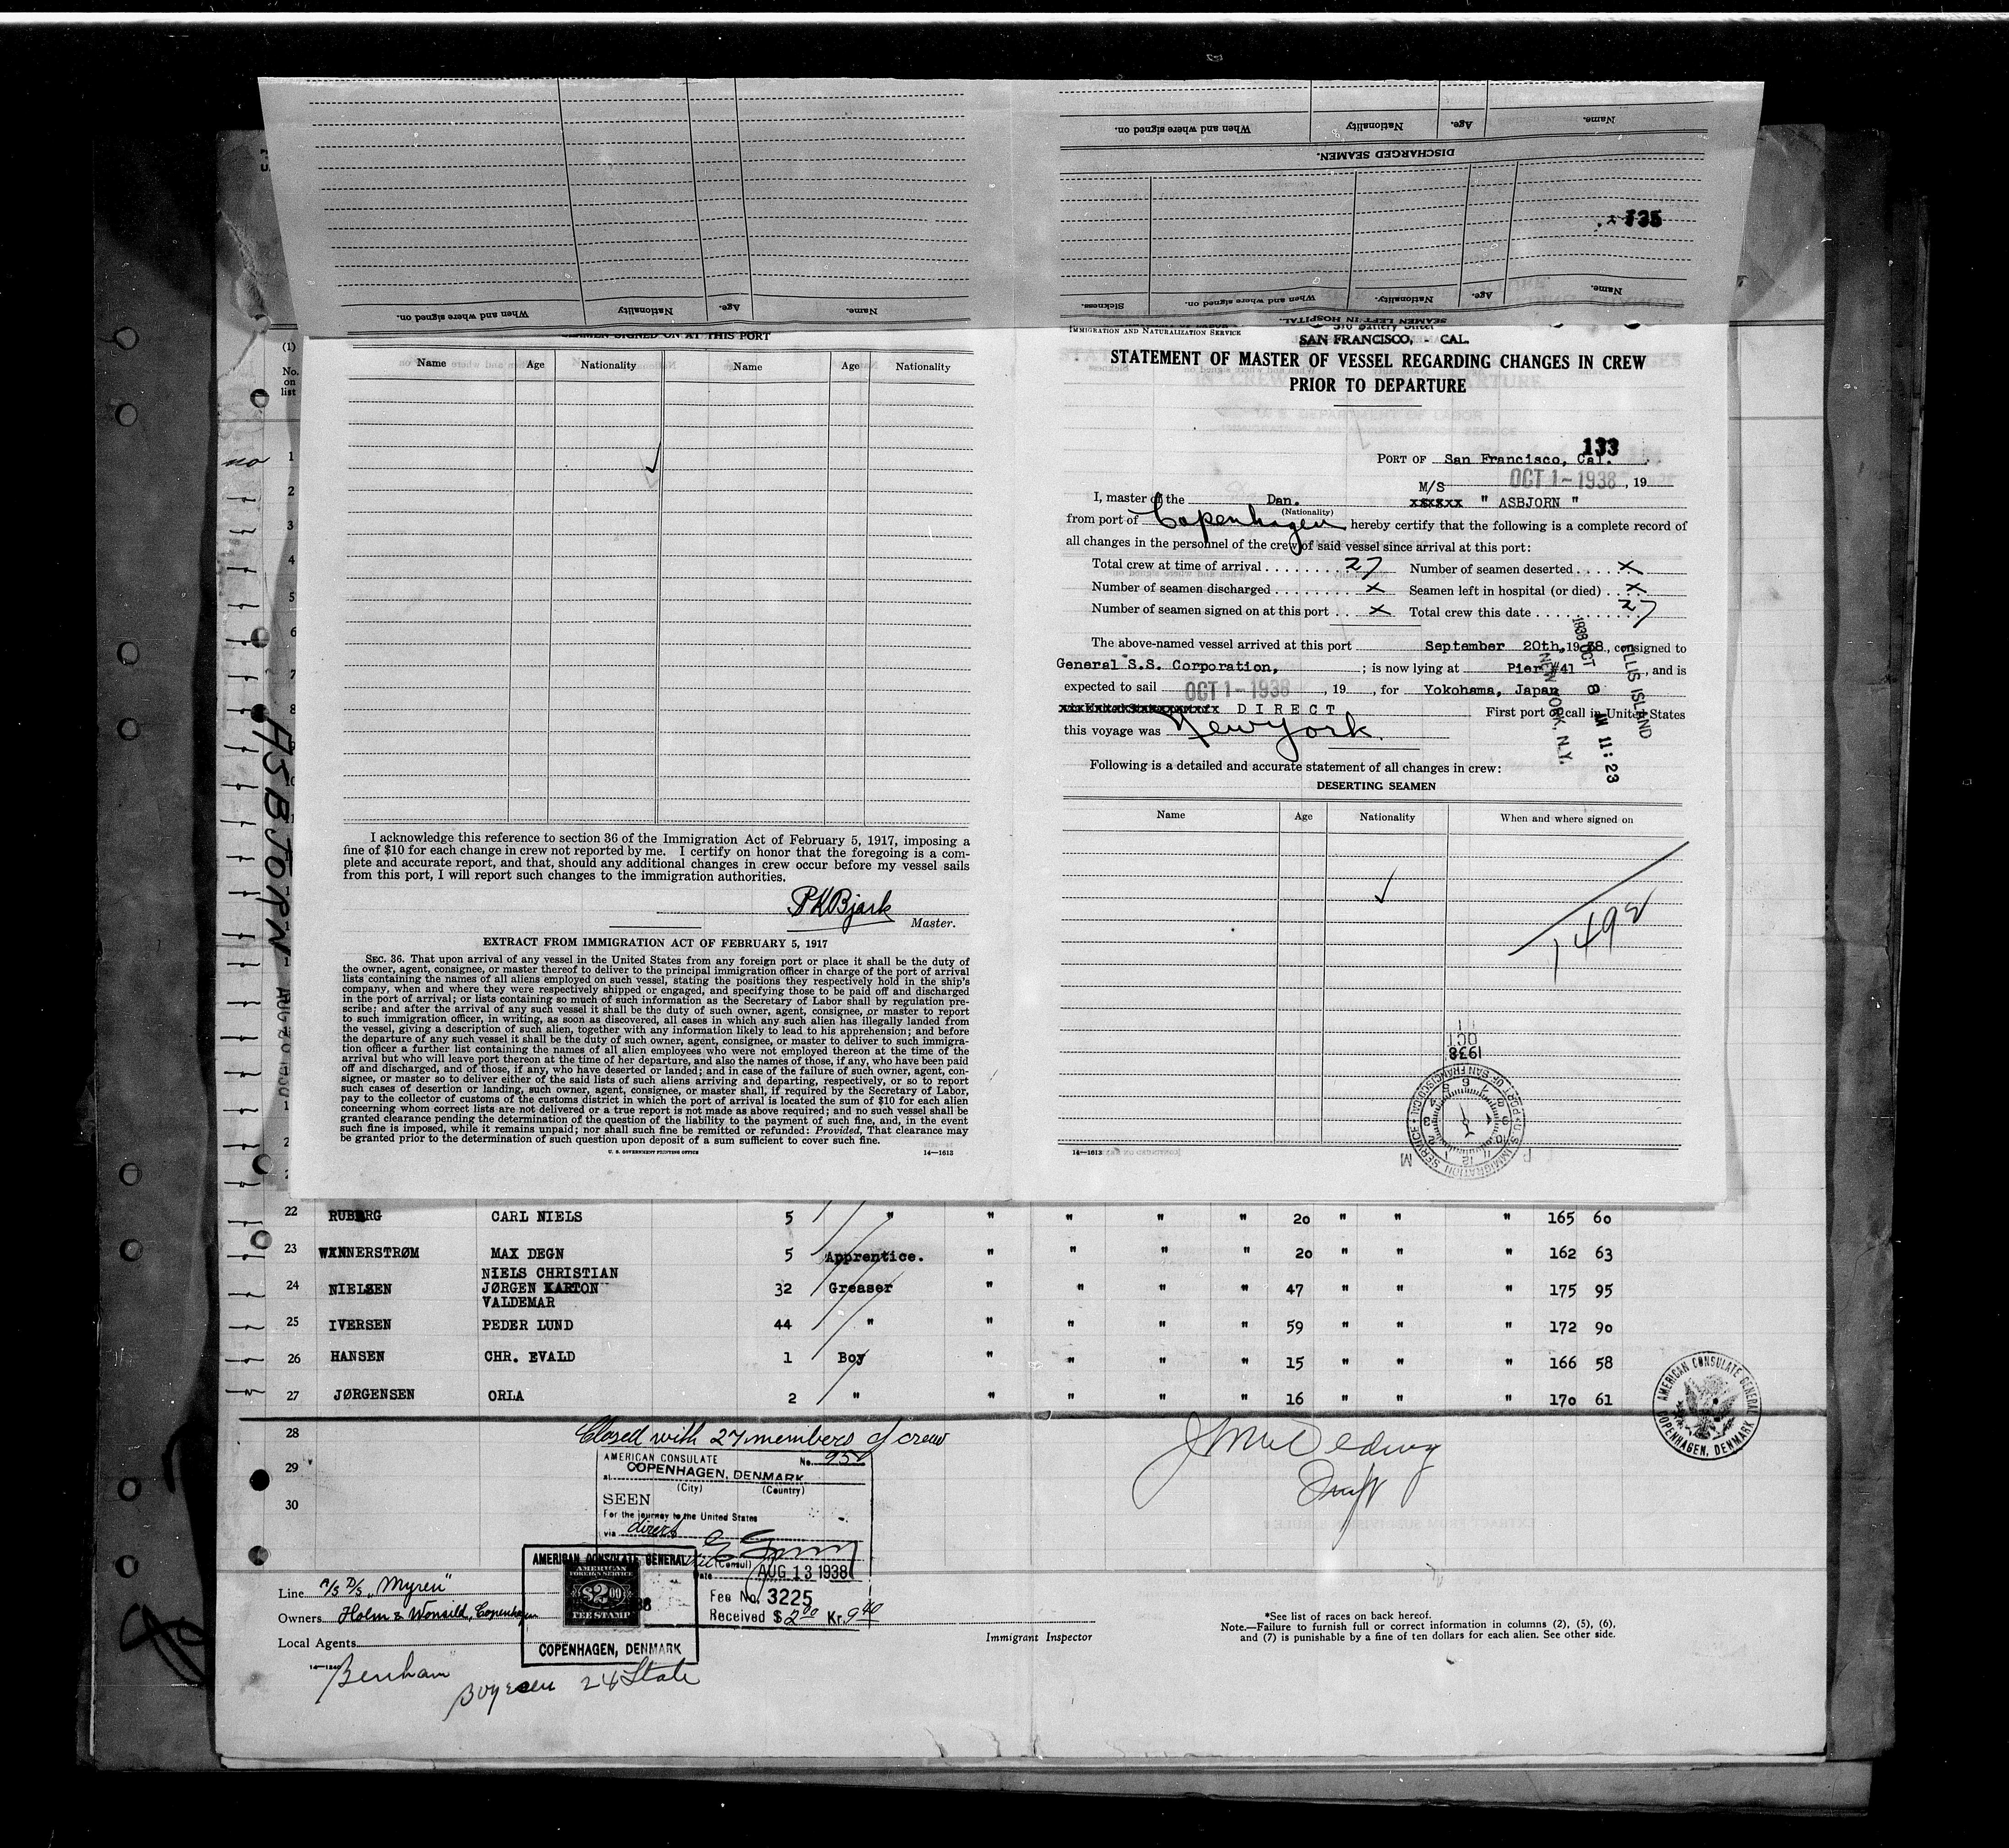 When and where signed on. Nationality Age. Name.
DISCHARGED SEAMEN.
135
When and where signed on. Nationality Age. Name.
Sickness. When and where signed on. Nationality. Age. Name.
SEAMEN LEFT IN HOSPITAL.
SEAMEN SIGNED ON AT THIS PORT
Name Age Nationality Name Age Nationality
I acknowledge this reference to section 36 of the Immigration Act of February 5, 1917, imposing a
fine of $10 for each change in crew not reported by me. I certify on honor that the foregoing is a com-
plete and accurate report, and that, should any additional changes in crew occur before my vessel sails
from this port, I will report such changes to the immigration authorities.
PKBjark
Master.
EXTRACT FROM IMMIGRATION ACT OF FEBRUARY 5, 1917
SEC. 36. That upon arrival of any vessel in the United States from any foreign port or place it shall be the duty of
the owner, agent, consignee, or master thereof to deliver to the principal immigration officer in charge of the port of arrival
lists containing the names of all aliens employed on such vessel, stating the positions they respectively hold in the ship's
company, when and where they were respectively shipped or engaged, and specifying those to be paid off and discharged
in the port of arrival; or lists containing so much of such information as the Secretary of Labor shall by regulation pre-
scribe; and after the arrival of any such vessel it shall be the duty of such owner, agent, consignee, or master to report
to such immigration officer, in writing, as soon as discovered, all cases in which any such alien has illegally landed from
the vessel, giving a description of such alien, together with any information likely to lead to his apprehension; and before
the departure of any such vessel it shall be the duty of such owner, agent, consignee, or master to deliver to such immigra-
tion officer a further list containing the names of all alien employees who were not employed thereon at the time of the
arrival but who will leave port thereon at the time of her departure, and also the names of those, if any, who have been paid
off and discharged, and of those, if any, who have deserted or landed; and in case of the failure of such owner, agent, con-
signee, or master so to deliver either of the said lists of such aliens arriving and departing, respectively, or so to report
such cases of desertion or landing, such owner, agent, consignee, or master shall, if required by the Secretary of Labor,
pay to the collector of customs of the customs district in which the port of arrival is located the sum of $10 for each alien
concerning whom correct lists are not delivered or a true report is not made as above required; and no such vessel shall be
granted clearance pending the determination of the question of the liability to the payment of such fine, and, in the event
such fine is imposed, while it remains unpaid; nor shall such fine be remitted or refunded: Provided, That clearance may
be granted prior to the determination of such question upon deposit of a sum sufficient to cover such fine.
U. S. GOVERNMENT PRINTING OFFICE 14—1613
IMMIGRATION AND NATURALIZATION SERVICE
Battery Street
SAN FRANCISCO, - CAL.
STATEMENT OF MASTER OF VESSEL REGARDING CHANGES IN CREW
PRIOR TO DEPARTURE
133
PORT OF San Francisco, Cal.
OCT 1 - 1938, 19
I, master of the Dan. M/S xxxxx " ASBJORN "
(Nationality)
from port of Copenhagen hereby certify that the following is a complete record of
all changes in the personnel of the crew of said vessel since arrival at this port:
Total crew at time of arrival ........ 27 Number of seamen deserted .... X
Number of seamen discharged ........ X Seamen left in hospital (or died) .. X
Number of seamen signed on at this port .. X Total crew this date .......... 27
The above-named vessel arrived at this port September 20th, 1938, consigned to
General S.S. Corporation, ; is now lying at Pier #41, and is
expected to sail OCT 1 - 1938, 19, for Yokohama, Japan
DIRECT First port of call in United States
this voyage was New York.
1938 OCT 8 AM 11:23
ELLIS ISLAND
NEW YORK, N.Y.
Following is a detailed and accurate statement of all changes in crew:
DESERTING SEAMEN
Name Age Nationality When and where signed on
1492
OCT 11 1938
U.S. IMMIGRATION SERVICE PORT OF SAN FRANCISCO, CAL.
P M
14—1613
(1)
No.
on
list
no
1
2
3
4
5
6
7
8
10
ASBJORN
22 RUBERG CARL NIELS 5 " " " " " 20 " " " 165 60
23 WANNERSTRØM MAX DEGN 5 Apprentice. " " " " 20 " " " 162 63
24 NIELSEN NIELS CHRISTIAN JØRGEN KARTON VALDEMAR 32 Greaser " " " " 47 " " " 175 95
25 IVERSEN PEDER LUND 44 " " " " " 59 " " " 172 90
26 HANSEN CHR. EVALD 1 Boy " " " " 15 " " " 166 58
27 JØRGENSEN ORLA 2 " " " " " 16 " " " 170 61
28
29
30
Closed with 27 members of crew
AMERICAN CONSULATE No. 950
at COPENHAGEN, DENMARK
(City) (Country)
SEEN
For the journey to the United States
via direct
(Consul)
Date AUG 13 1938
Fee No. 3225
Received $ 2.00 Kr. 9.40
AMERICAN CONSULATE GENERAL
AMERICAN
FOREIGN SERVICE
$2.00
FEE STAMP
COPENHAGEN, DENMARK
AMERICAN CONSULATE GENERAL
COPENHAGEN, DENMARK
Line A/S D/S „Myren"
Owners Holm & Wonsild, Copenhagen
Local Agents
Benham Boyesen 24 State
Immigrant Inspector
*See list of races on back hereof.
Note.—Failure to furnish full or correct information in columns (2), (5), (6),
and (7) is punishable by a fine of ten dollars for each alien. See other side.